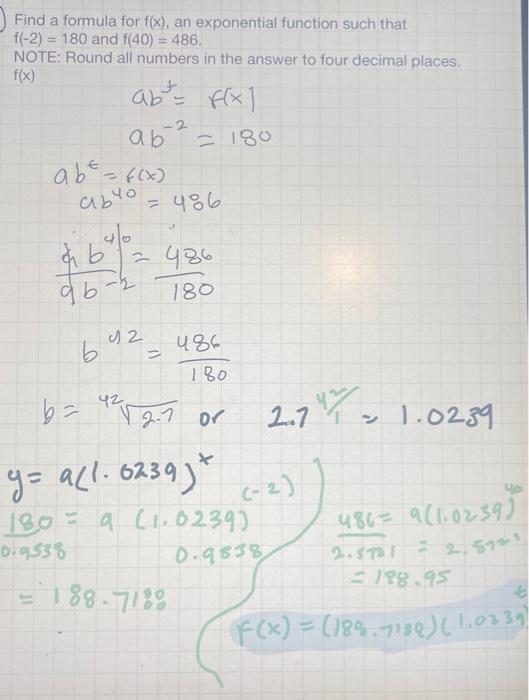 Find a formula for f(x), an exponential function such that
f(-2) = 180 and f(40) = 486.
NOTE: Round all numbers in the answer to four decimal places.
f(x)
ab^t = f(x)
ab^-2 = 180
ab^t = f(x)
ab^40 = 486
ab^40 / ab^-2 = 486 / 180
b^42 = 486 / 180
b = 42√2.7 or 2.7^42/1 = 1.0239
y = a(1.0239)^x
180 = a (1.0239)^(-2)
0.9538 0.9538
= 188.7188
486 = a(1.0239)^40
2.5721 = 2.5721
= 188.95
f(x) = (188.7188)(1.0239)^t